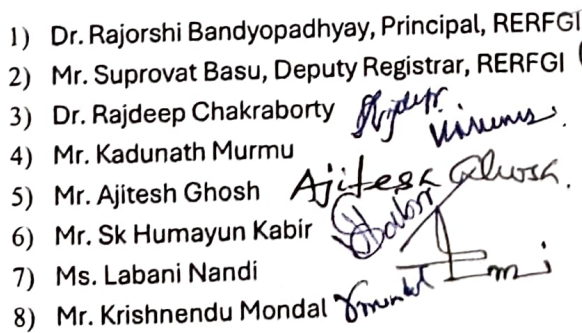 1) Dr. Rajorshi Bandyopadhyay, Principal, RERFGI
2) Mr. Suprovat Basu, Deputy Registrar, RERFGI
3) Dr. Rajdeep Chakraborty
4) Mr. Kadunath Murmu
5) Mr. Ajitesh Ghosh Ajitesh Ghosh.
6) Mr. Sk Humayun Kabir
7) Ms. Labani Nandi
8) Mr. Krishnendu Mondal